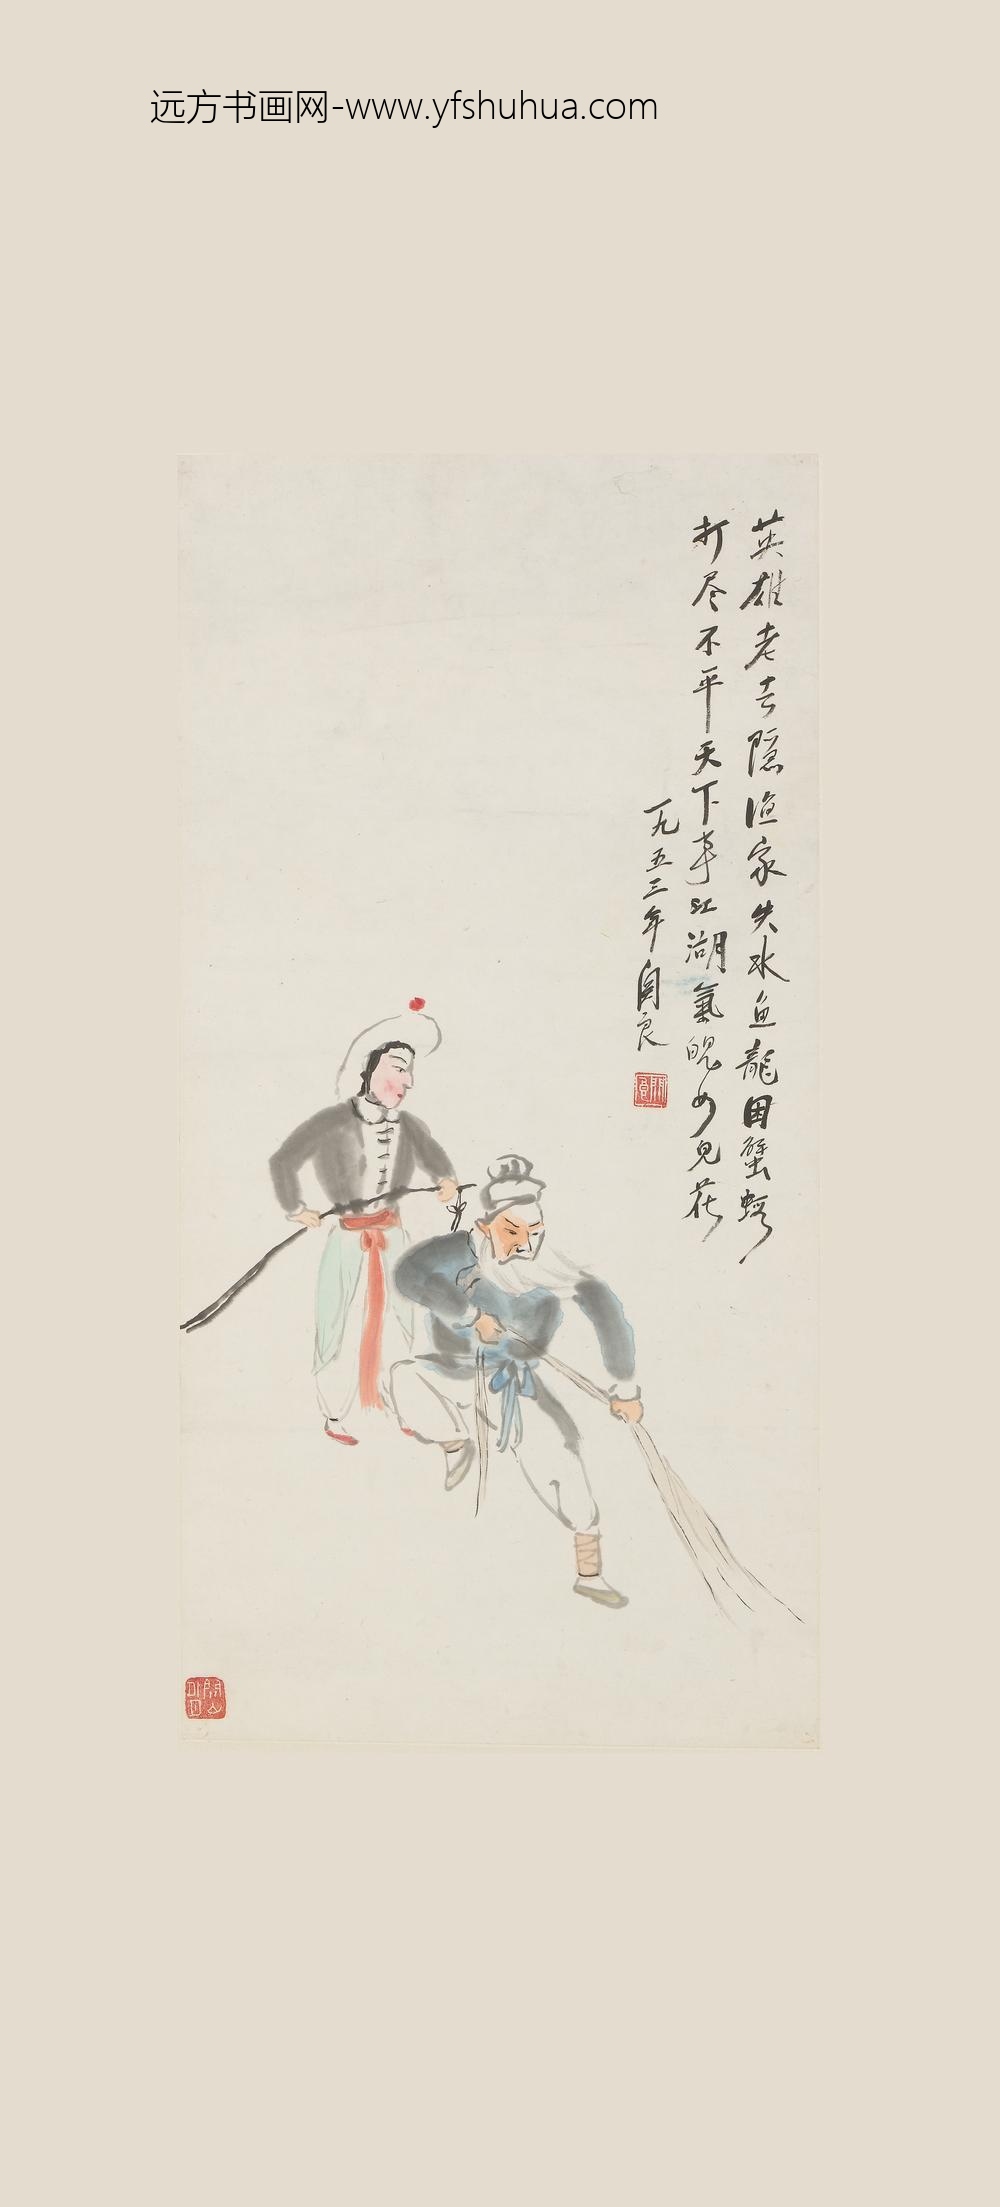 远方书画网-www.yfshuhua.com
英雄老去隐渔家失水鱼龍困蟹蝦
打尽不平天下事江湖氣魄女児花
一九五三年関良
関良